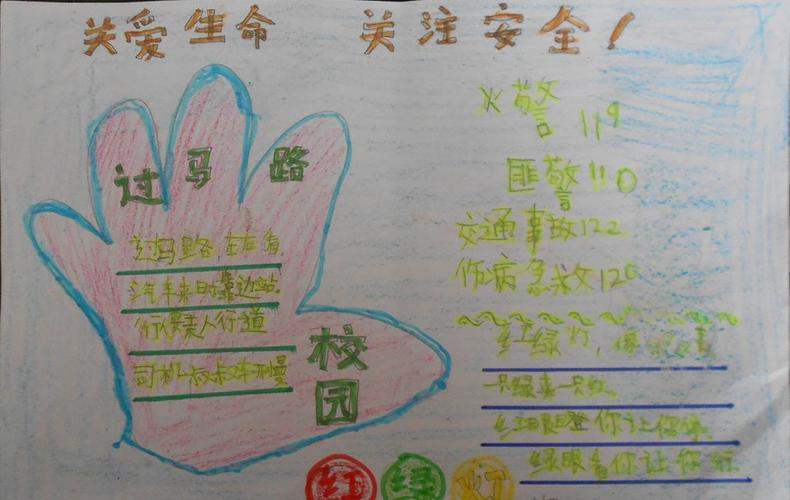 关爱生命 关注安全！
过马路
过马路,左右看
汽车来时靠边站
行人走人行道
司机叔叔车开慢
校园
火警119
匪警110
交通事故122
伤病急救120
红绿灯,
一只绿来一只红
红眼瞪你让你停
绿眼看你让你行
红绿灯